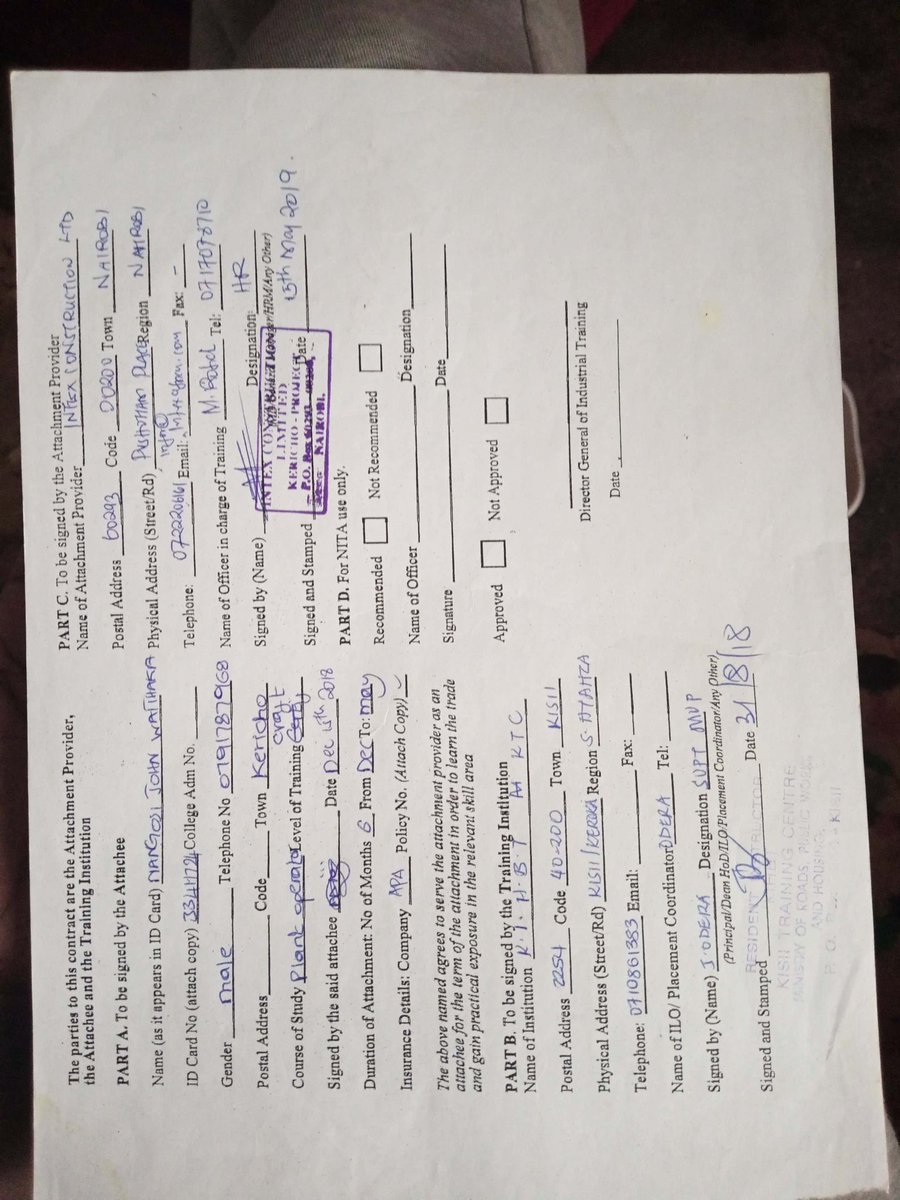 The parties to this contract are the Attachment Provider,
the Attachee and the Training Institution
PART A. To be signed by the Attachee
Name (as it appears in ID Card) JOHN WAITHAKA
ID Card No (attach copy) College Adm No.
Gender male Telephone No 0791787968
Postal Address Code Town Kericho
Course of Study Plant operator Level of Training craft
Signed by the said attachee Date Dec 15th 2018
Duration of Attachment: No of Months 6 From Dec To: may
Insurance Details: Company APA Policy No. (Attach Copy)
The above named agrees to serve the attachment provider as an
attachee for the term of the attachment in order to learn the trade
and gain practical exposure in the relevant skill area
PART B. To be signed by the Training Institution
Name of Institution K.I.H.B.T At KTC
Postal Address 2254 Code 40-200 Town KISII
Physical Address (Street/Rd) KISII/KEROKA Region
Telephone: 0710861383 Email: Fax:
Name of ILO/ Placement Coordinator ODERA Tel:
Signed by (Name) J. ODERA Designation SUPT MVP
(Principal/Dean/HoD/ILO/Placement Coordinator/Any Other)
Signed and Stamped Date 31/8/18
KISII TRAINING CENTRE
MINISTRY OF ROADS, PUBLIC WORKS
AND HOUSING
P. O. KISII
PART C. To be signed by the Attachment Provider
Name of Attachment Provider INTEX CONSTRUCTION LTD
Postal Address 60293 Code 00200 Town NAIROBI
Physical Address (Street/Rd) PLACE Region NAIROBI
Telephone: 0722206161 Email: Fax: -
Name of Officer in charge of Training M. Patel Tel: 0717078710
Signed by (Name) Designation: HR
Signed and Stamped Date 15th May 2019.
INTEX CONSTRUCTION
LIMITED
KERICHO - PROJECT
P.O. Box 60293
NAIROBI.
PART D. For NITA use only.
Recommended Not Recommended
Name of Officer Designation
Signature Date
Approved Not Approved
Director General of Industrial Training
Date